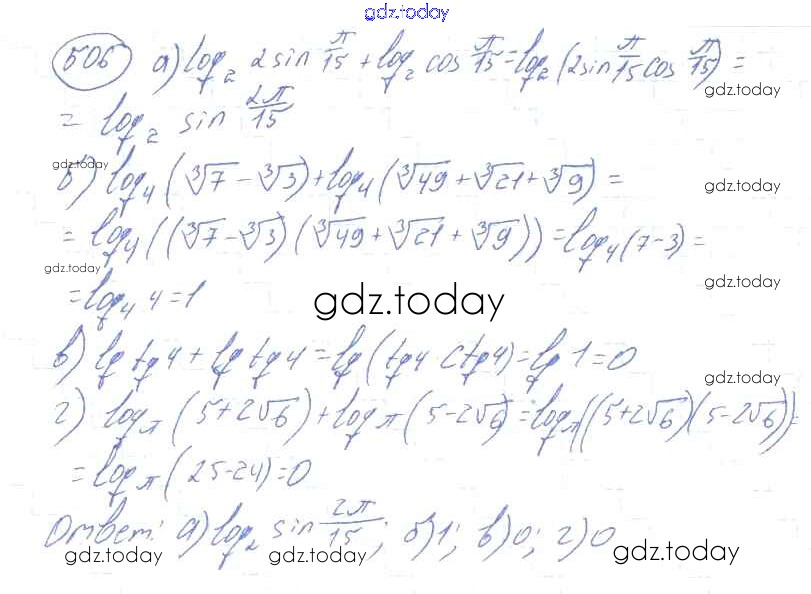 gdz.today
506 а) log₂ 2sin π/15 + log₂ cos π/15 = log₂ (2sin π/15 cos π/15) =
gdz.today
= log₂ sin 2π/15
gdz.today
б) log₄ (∛7 − ∛3) + log₄ (∛49 + ∛21 + ∛9) =
gdz.today
= log₄ ((∛7 − ∛3) (∛49 + ∛21 + ∛9)) = log₄ (7−3) =
gdz.today
gdz.today
= log₄ 4 = 1
gdz.today
в) lg tg4 + lg tg4 = lg (tg4 ctg4) = lg 1 = 0
gdz.today
г) log_π (5+2√6) + log_π (5−2√6) = log_π ((5+2√6) (5−2√6)) =
= log_π (25−24) = 0
Ответ: а) log₂ sin 2π/15; б) 1; в) 0; г) 0
gdz.today gdz.today gdz.today